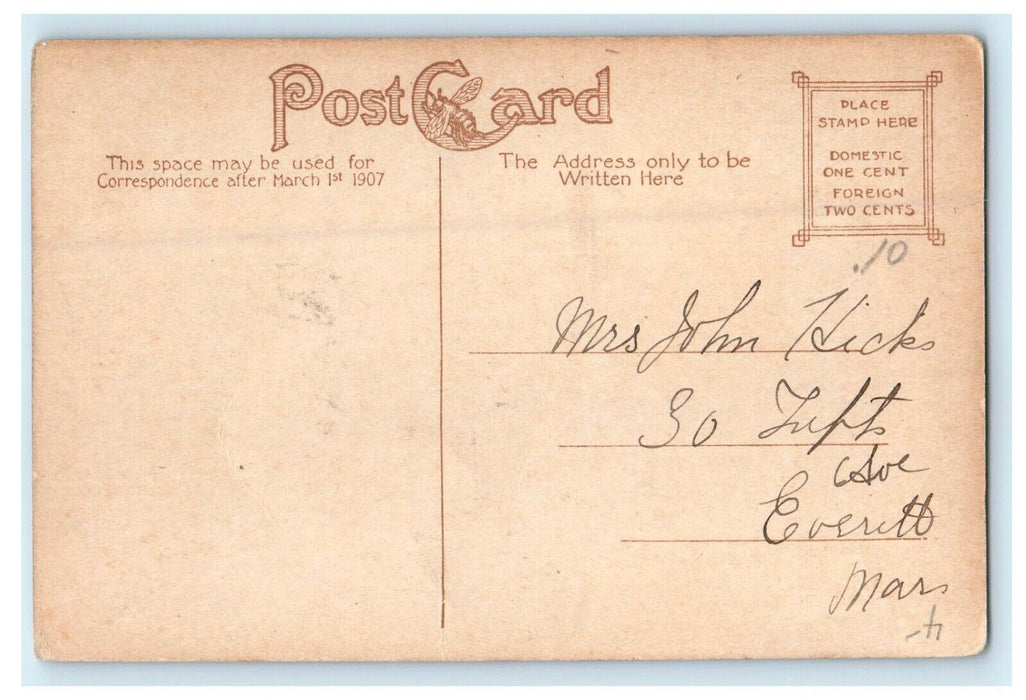 Post Card
This space may be used for
Correspondence after March 1st 1907
The Address only to be
Written Here
PLACE
STAMP HERE
DOMESTIC
ONE CENT
FOREIGN
TWO CENTS
.10
Mrs John Hicks
30 Tufts
Ave
Everett
Mass
4-